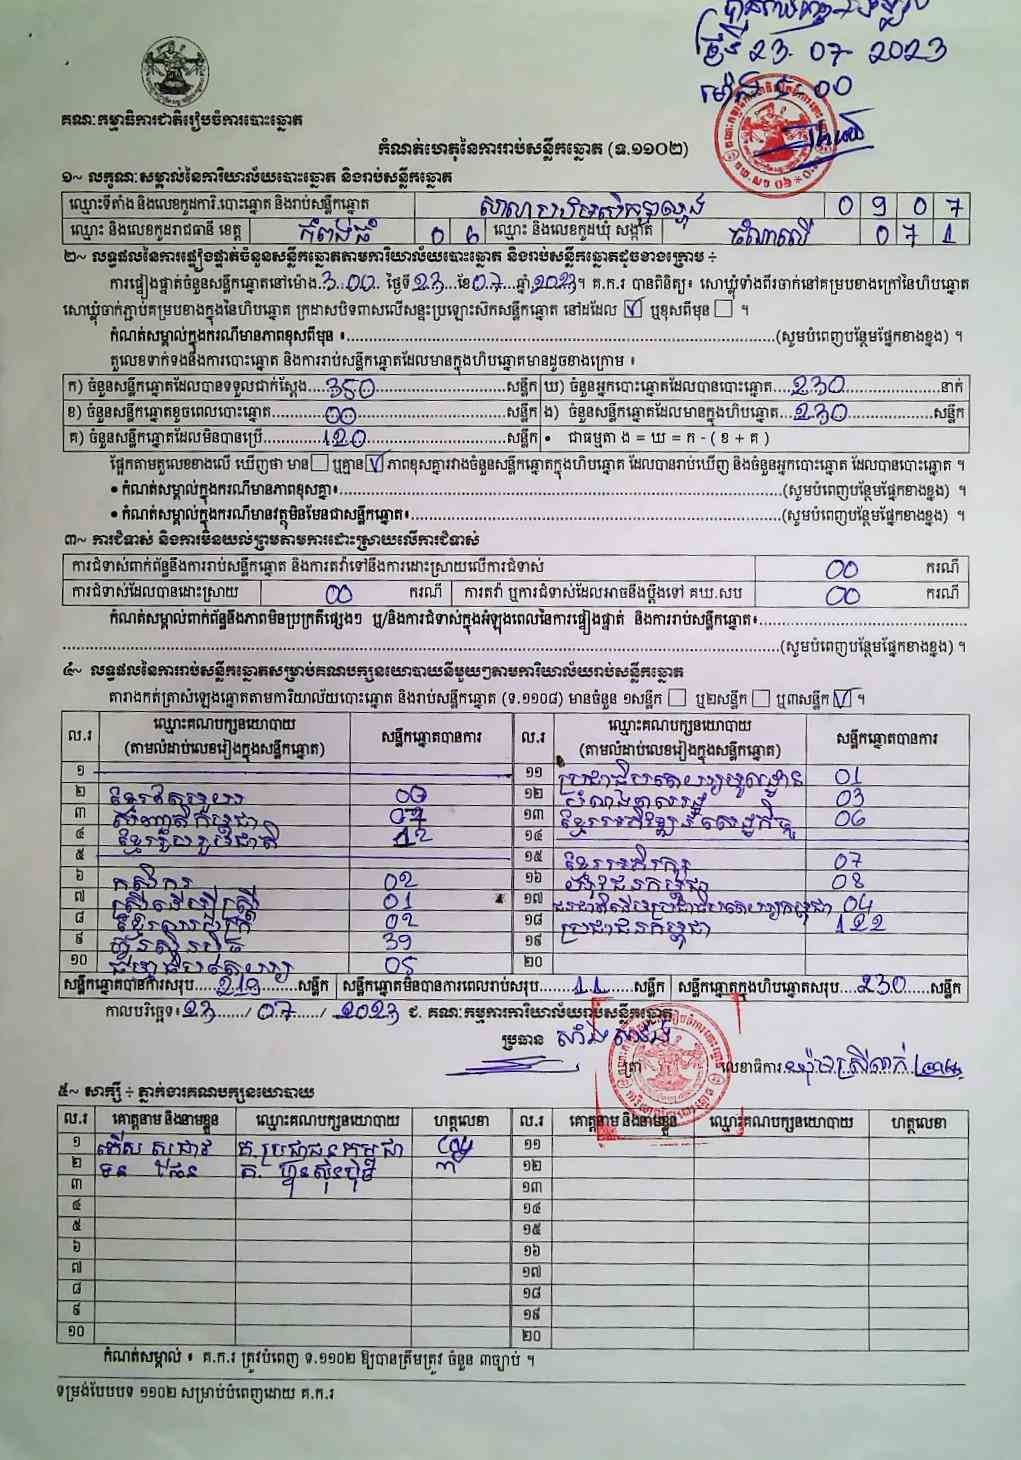 ថ្ងៃទី 23-07-2023
ម៉ោង
គណៈកម្មាធិការជាតិរៀបចំការបោះឆ្នោត
កំណត់ហេតុនៃការរាប់សន្លឹកឆ្នោត (ទ.១១០២)
១~ លក្ខណៈសម្គាល់នៃការិយាល័យបោះឆ្នោត និងរាប់សន្លឹកឆ្នោត
ឈ្មោះទីតាំង និងលេខកូដការិ.បោះឆ្នោត និងរាប់សន្លឹកឆ្នោត 0 9 0 7
ឈ្មោះ និងលេខកូដរាជធានី ខេត្ត កំពង់ធំ 0 6 ឈ្មោះ និងលេខកូដឃុំ សង្កាត់ 0 7 1
២~ លទ្ធផលនៃការផ្ទៀងផ្ទាត់ចំនួនសន្លឹកឆ្នោតតាមការិយាល័យបោះឆ្នោត និងរាប់សន្លឹកឆ្នោតដូចខាងក្រោម ÷
ការផ្ទៀងផ្ទាត់ចំនួនសន្លឹកឆ្នោតនៅម៉ោង.3:00. ថ្ងៃទី23...ខែ07...ឆ្នាំ.2023។ គ.ក.រ បានពិនិត្យ៖ សោឃ្លុំទាំងពីរចាក់នៅគម្របខាងក្រៅនៃហិបឆ្នោត
សោឃ្លុំចាក់ភ្ជាប់គម្របខាងក្នុងនៃហិបឆ្នោត ក្រដាសបិទពាសលើសន្ទះប្រឡោះស៊កសន្លឹកឆ្នោត នៅដដែល ☑ ឬខុសពីមុន ☐ ។
កំណត់សម្គាល់ក្នុងករណីមានភាពខុសពីមុន ៖...(សូមបំពេញបន្ថែមផ្នែកខាងខ្នង) ។
តួលេខទាក់ទងនឹងការបោះឆ្នោត និងការរាប់សន្លឹកឆ្នោតដែលមានក្នុងហិបឆ្នោតមានដូចខាងក្រោម ៖
ក) ចំនួនសន្លឹកឆ្នោតដែលបានទទួលជាក់ស្តែង...350...សន្លឹក ឃ) ចំនួនអ្នកបោះឆ្នោតដែលបានបោះឆ្នោត...230...នាក់
ខ) ចំនួនសន្លឹកឆ្នោតខូចពេលបោះឆ្នោត...00...សន្លឹក ង) ចំនួនសន្លឹកឆ្នោតដែលមានក្នុងហិបឆ្នោត...230...សន្លឹក
គ) ចំនួនសន្លឹកឆ្នោតដែលមិនបានប្រើ...120...សន្លឹក • ជាធម្មតា ង = ឃ = ក - ( ខ + គ )
ផ្អែកតាមតួលេខខាងលើ ឃើញថា មាន ☐ ឬគ្មាន ☑ ភាពខុសគ្នារវាងចំនួនសន្លឹកឆ្នោតក្នុងហិបឆ្នោត ដែលបានរាប់ឃើញ និងចំនួនអ្នកបោះឆ្នោត ដែលបានបោះឆ្នោត ។
• កំណត់សម្គាល់ក្នុងករណីមានភាពខុសគ្នា៖...(សូមបំពេញបន្ថែមផ្នែកខាងខ្នង) ។
• កំណត់សម្គាល់ក្នុងករណីមានវត្ថុមិនមែនជាសន្លឹកឆ្នោត៖...(សូមបំពេញបន្ថែមផ្នែកខាងខ្នង) ។
៣~ ការជំទាស់ និងការមិនយល់ព្រមតាមការដោះស្រាយលើការជំទាស់
ការជំទាស់ពាក់ព័ន្ធនឹងការរាប់សន្លឹកឆ្នោត និងការតវ៉ាទៅនឹងការដោះស្រាយលើការជំទាស់ 00 ករណី
ការជំទាស់ដែលបានដោះស្រាយ 00 ករណី ការតវ៉ា ឬការជំទាស់ដែលអាចនឹងប្តឹងទៅ គឃ.សប 00 ករណី
កំណត់សម្គាល់ពាក់ព័ន្ធនឹងភាពមិនប្រក្រតីផ្សេងៗ ឬ/និងការជំទាស់ក្នុងអំឡុងពេលនៃការផ្ទៀងផ្ទាត់ និងការរាប់សន្លឹកឆ្នោត៖...
...(សូមបំពេញបន្ថែមផ្នែកខាងខ្នង) ។
៤~ លទ្ធផលនៃការរាប់សន្លឹកឆ្នោតសម្រាប់គណបក្សនយោបាយនីមួយៗតាមការិយាល័យរាប់សន្លឹកឆ្នោត
តារាងកត់ត្រាសំឡេងឆ្នោតតាមការិយាល័យបោះឆ្នោត និងរាប់សន្លឹកឆ្នោត (ទ.១១០៨) មានចំនួន ១សន្លឹក ☐ ឬ២សន្លឹក ☐ ឬ៣សន្លឹក ☑ ។
ល.រ ឈ្មោះគណបក្សនយោបាយ (តាមលំដាប់លេខរៀងក្នុងសន្លឹកឆ្នោត) សន្លឹកឆ្នោតបានការ ល.រ ឈ្មោះគណបក្សនយោបាយ (តាមលំដាប់លេខរៀងក្នុងសន្លឹកឆ្នោត) សន្លឹកឆ្នោតបានការ
១ ១១ 01
២ ខ្មែរតែមួយ 00 ១២ 03
៣ 07 ១៣ 06
៤ ខ្មែររួបរួមជាតិ 12 ១៤
៥ ១៥ ខ្មែរអភិរក្ស 07
៦ កសិករ 02 ១៦ 08
៧ ស្ត្រីដើម្បីស្ត្រី 01 ១៧ 04
៨ 02 ១៨ ប្រជាជនកម្ពុជា 122
៩ ហ្វ៊ុនស៊ិនប៉ិច 39 ១៩
១០ 05 ២០
សន្លឹកឆ្នោតបានការសរុប...219...សន្លឹក សន្លឹកឆ្នោតមិនបានការពេលរាប់សរុប...11...សន្លឹក សន្លឹកឆ្នោតក្នុងហិបឆ្នោតសរុប...230...សន្លឹក
កាលបរិច្ឆេទ៖ 23 / 07 / 2023 ជ. គណៈកម្មការការិយាល័យរាប់សន្លឹកឆ្នោត
ប្រធាន ត្រា លេខាធិការ
៥~ សាក្សី ÷ ភ្នាក់ងារគណបក្សនយោបាយ
ល.រ គោត្តនាម និងនាមខ្លួន ឈ្មោះគណបក្សនយោបាយ ហត្ថលេខា ល.រ គោត្តនាម និងនាមខ្លួន ឈ្មោះគណបក្សនយោបាយ ហត្ថលេខា
១ គ. ប្រជាជនកម្ពុជា ១១
២ គ. ហ្វ៊ុនស៊ិនប៉ិច ១២
៣ ១៣
៤ ១៤
៥ ១៥
៦ ១៦
៧ ១៧
៨ ១៨
៩ ១៩
១០ ២០
កំណត់សម្គាល់ ៖ គ.ក.រ ត្រូវបំពេញ ទ.១១០២ ឱ្យបានត្រឹមត្រូវ ចំនួន ៣ច្បាប់ ។
ទម្រង់បែបបទ ១១០២ សម្រាប់បំពេញដោយ គ.ក.រ